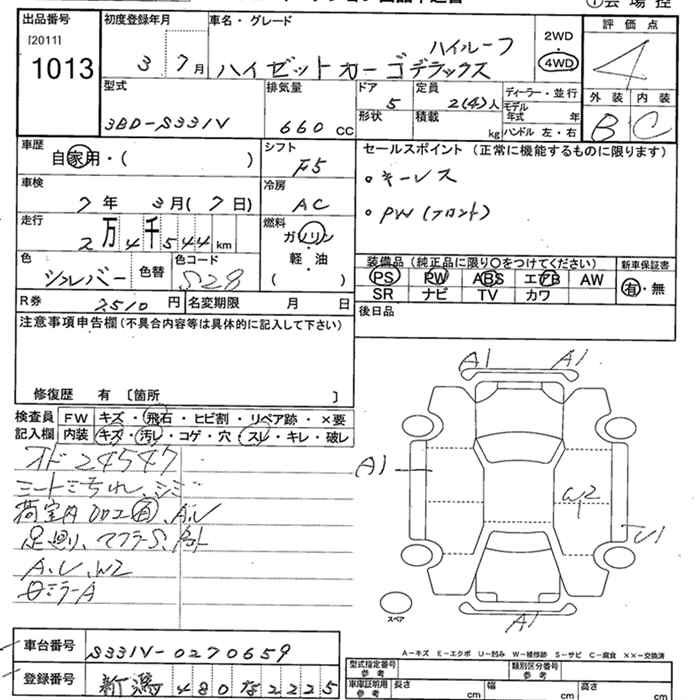 出品番号
[2011]
1013
初度登録年月
3 7月
車名・グレード
ハイルーフ
ハイゼットカーゴデラックス
2WD
・
4WD
評価点
4
外装 内装
B C
型式
3BD-S331V
排気量
660 cc
ドア
5
形状
定員
2(4)人
積載
kg
ディーラー・並行
モデル
年式 年
ハンドル 左・右
車歴
自家用・( )
シフト
F5
車検
7年 3月(7日)
冷房
AC
走行
2万4千544km
燃料
ガソリン
・
軽・油
( )
色
シルバー
色替
色コード
S28
R券 7510円
名変期限 月 日
セールスポイント(正常に機能するものに限ります)
・キーレス
・PW(フロント)
装備品(純正品に限り〇をつけてください)
PS PW ABS エアB AW
SR ナビ TV カワ
新車保証書
有・無
後日品
注意事項申告欄(不具合内容等は具体的に記入して下さい)
修復歴 有 〔箇所 〕
検査員 FW キズ・飛石・ヒビ割・リペア跡・×要
記入欄 内装 キズ・汚レ・コゲ・穴・スレ・キレ・破レ
オド24547
シートミちれ、シミ
荷室内 加工有、A.U
足廻り、マフラーS、
A、U、W2
ミラーA
A1 A1
A1
W2
U1
A1
スペア
A-キズ E-エクボ U-凹み W-補修跡 S-サビ C-腐食 ××-交換済
車台番号 S331V-0270659
登録番号 新潟480な2225
型式指定番号
参考
類別区分番号
参考
車庫証明用
参考
長さ cm
幅 cm
高さ cm